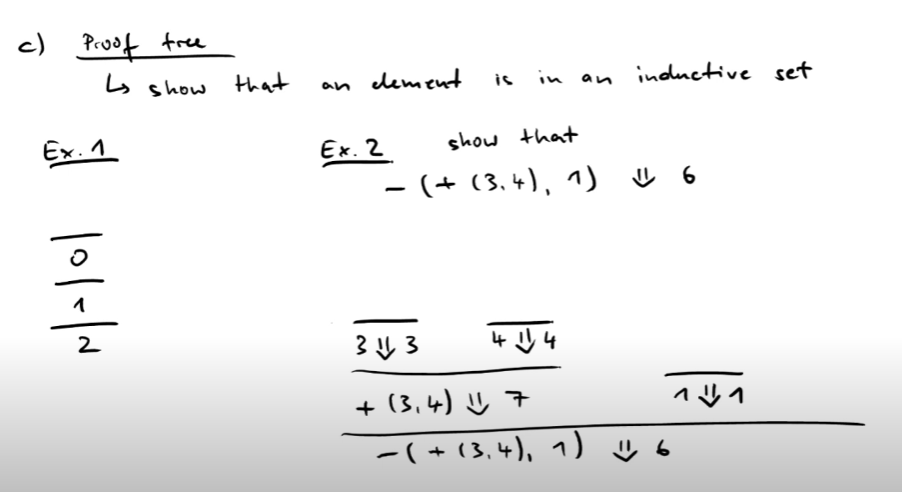 c) Proof tree
↳ show that an element is in an inductive set
Ex. 1
0
1
2
Ex. 2 show that
- (+ (3, 4), 1) ⇓ 6
3 ⇓ 3 4 ⇓ 4
+ (3, 4) ⇓ 7 1 ⇓ 1
- (+ (3, 4), 1) ⇓ 6